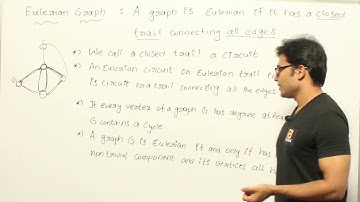 Eulerian Graph : A graph is Eulerian if it has a closed
trail connecting all edges
*) We call a closed trail a circuit
*) An Eulerian circuit or Eulerian trail
is circuit or a trail connecting all the edges
*) If every vertex of a graph G has degree at lea
G contains a cycle
*) A graph G is Eulerian if and only if has
nontrivial component and its vertices all h